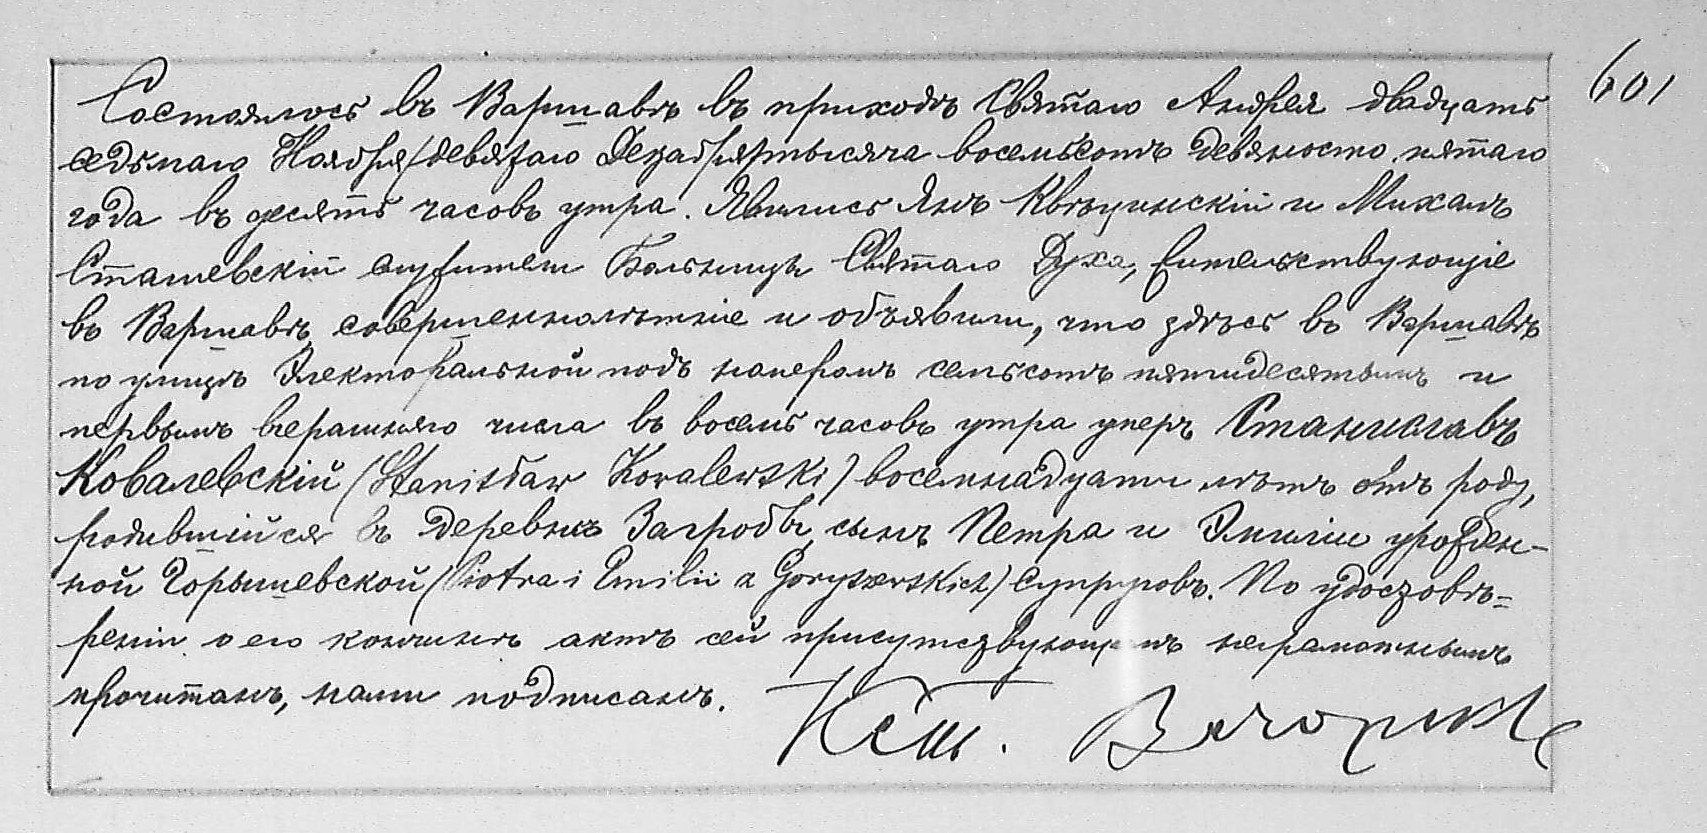 601
Состоялось въ Варшавѣ въ приходѣ Святаго Андрея двадцать
седьмаго Ноября/девятаго Декабря/тысяча восемьсотъ девяносто пятаго
года въ десять часовъ утра. Явились Янъ Квѣцинскій и Михалъ
Сташевскій служители Больницы Святаго Духа, жительствующіе
въ Варшавѣ, совершеннолѣтніе и объявили, что здѣсь въ Варшавѣ
по улицѣ Электоральной подъ номеромъ семьсотъ пятидесятымъ и
первымъ вчерашняго числа въ восемь часовъ утра умеръ Станиславъ
Ковалевскій (Stanisław Kowalewski) восемнадцати лѣтъ отъ роду,
родившійся въ деревнѣ Загробы, сынъ Петра и Эмиліи урожден-
ной Горышевской (Piotra i Emilii z Goryszewskich) супруговъ. По удостовѣ=
реніи о его кончинѣ актъ сей присутствующимъ неграмотнымъ
прочитанъ, нами подписанъ.